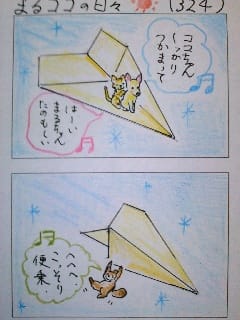 まるココの日々 (324)
ココちゃん
しっかり
つかまって
はーい
まるちゃん
たのもしい
へへへ、
こっそり
便乗.